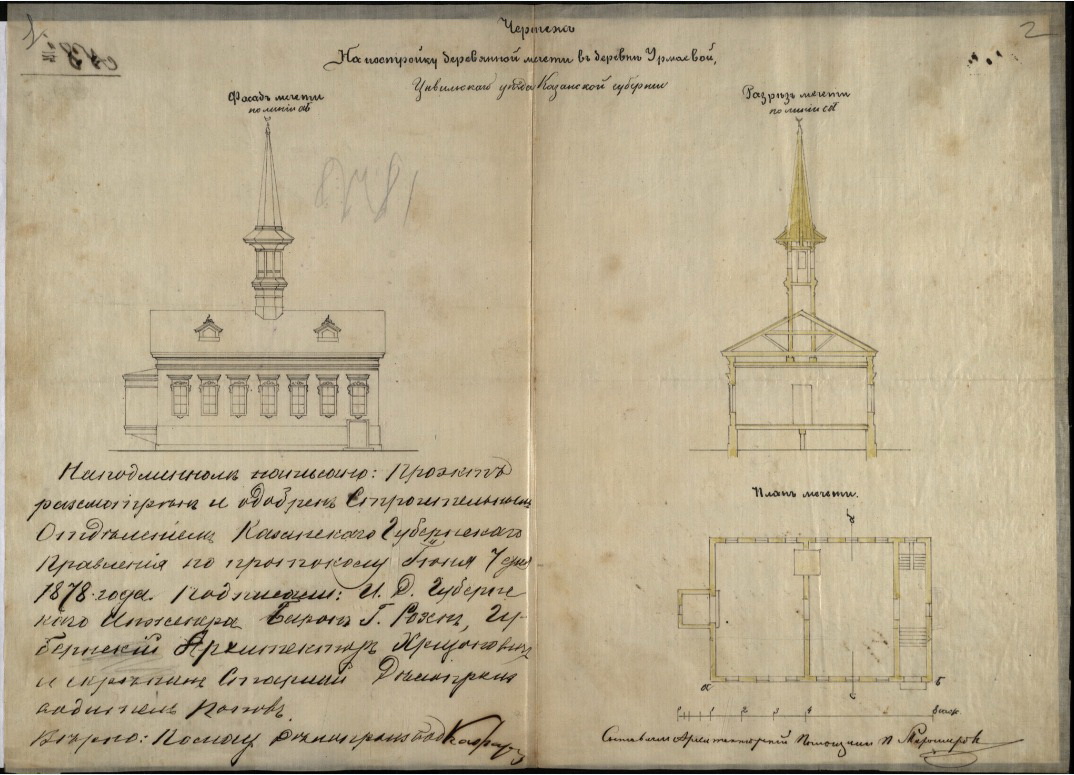 2
Чертежъ
На постройку деревянной мечети въ деревни Урмаевой,
Цивильскаго уѣзда Казанской губерніи
Фасадъ мечети
по линіи ab
Разрѣзъ мечети
по линіи cd
На подлинномъ написано: Проэктъ
разсмотрѣнъ и одобренъ Строительнымъ
Отдѣленіемъ Казанскаго Губернскаго
Правленія по протоколу Іюня 7 дня
1878 года. Подписали: И. Д. Губернс
каго Инженера Баронъ Г. Розенъ, Гу-
бернскій Архитекторъ
и скрѣпилъ Старшій Дѣлопроиз
водитель Поповъ.
Вѣрно:
Планъ мечети.
a
б
1
2
3
4
8 саж.
Составилъ Архитекторскій Помощникъ П.